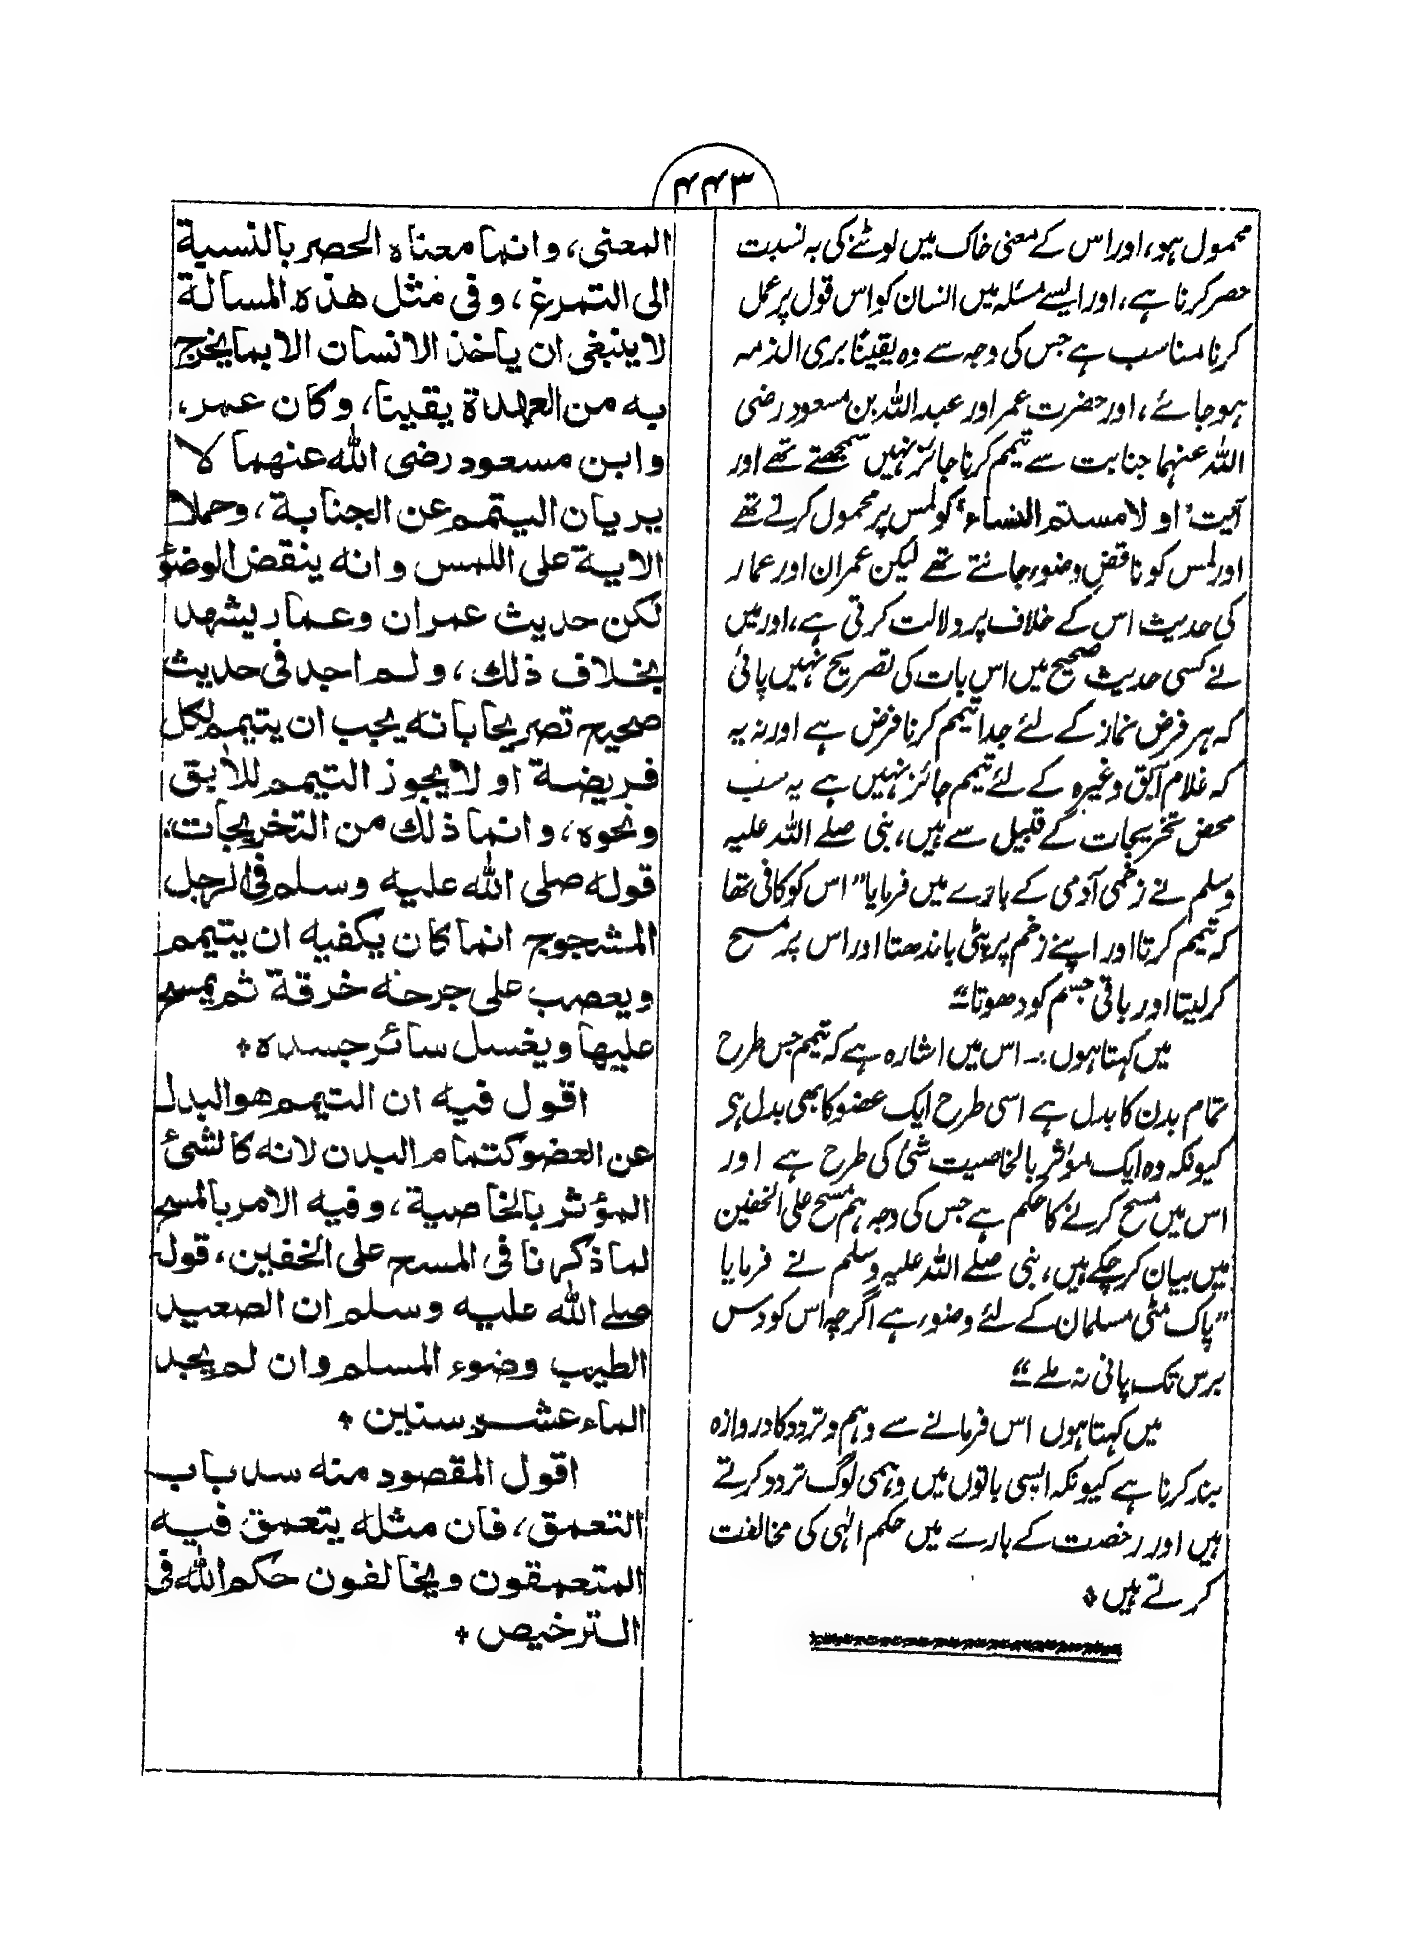 ۴۴۳
محمول ہو، اور اس کے معنی خاک میں لوٹنے کی بہ نسبت
حصر کرنا ہے، اور ایسے مسئلہ میں انسان کو اس قول پر عمل
کرنا مناسب ہے جس کی وجہ سے وہ یقینًا بری الذمہ
ہو جائے، اور حضرت عمر اور عبد اللہ بن مسعود رضی
اللہ عنہما جنابت سے تیمم کرنا جائز نہیں سمجھتے تھے اور
آیت "او لامستم النساء" کو لمس پر محمول کرتے تھے
اور لمس کو ناقض وضوء جانتے تھے لیکن عمران اور عمار
کی حدیث اس کے خلاف پر دلالت کرتی ہے، اور میں
نے کسی حدیث صحیح میں اس بات کی تصریح نہیں پائی
کہ ہر فرض نماز کے لئے جدا تیمم کرنا فرض ہے اور نہ یہ
کہ غلام آبق وغیرہ کے لئے تیمم جائز نہیں ہے یہ سب
محض تخریجات کے قبیل سے ہیں، نبی صلے اللہ علیہ
وسلم نے زخمی آدمی کے بارے میں فرمایا "اس کو کافی تھا
کہ تیمم کرتا اور اپنے زخم پر پٹی باندھتا اور اس پر مسح
کر لیتا اور باقی جسم کو دھوتا"
میں کہتا ہوں :۔ اس میں اشارہ ہے کہ تیمم جس طرح
تمام بدن کا بدل ہے اسی طرح ایک عضو کا بھی بدل ہے
کیونکہ وہ ایک مؤثر بالخاصیت شئ کی طرح ہے اور
اس میں مسح کرنے کا حکم ہے جس کی وجہ ہم مسح علی الخفین
میں بیان کر چکے ہیں، نبی صلے اللہ علیہ وسلم نے فرمایا
"پاک مٹی مسلمان کے لئے وضوء ہے اگرچہ اس کو دس
برس تک پانی نہ ملے"
میں کہتا ہوں اس فرمانے سے وہم و تردد کا دروازہ
بند کرنا ہے کیونکہ ایسی باتوں میں وہمی لوگ تردد کرتے
ہیں اور رخصت کے بارے میں حکم الٰہی کی مخالفت
کرتے ہیں ٭
المعنی، وانما معناه الحصر بالنسبة
الی التمرغ، وفی مثل هذه المسألة
لا ینبغی ان یاخذ الانسان الا بما یخرج
به من العهدة یقینا، وکان عمر،
وابن مسعود رضی الله عنهما لا
یریان الیتمم عن الجنابة، وحملا
الایة علی اللمس وانه ینقض الوضؤ
لکن حدیث عمران وعمار یشهد
بخلاف ذلك، ولم اجد فی حدیث
صحیح تصریحا بانه یجب ان یتیمم لکل
فریضة او لا یجوز التیمم للآبق
ونحوه، وانما ذلك من التخریجات،
قوله صلی الله علیه وسلم فی الرجل
المشجوج انما کان یکفیه ان یتیمم
ویعصب علی جرحه خرقة ثم یمسح
علیها ویغسل سائر جسده ٭
اقول فیه ان التیمم هو البدل
عن العضو کتمام البدن لانه کالشئ
المؤثر بالخاصیة، وفیه الامر بالمسح
لما ذکرنا فی المسح علی الخفین، قوله
صلے الله علیه وسلم ان الصعید
الطیب وضوء المسلم وان لم یجد
الماء عشر سنین ٭
اقول المقصود منه سد باب
التعمق، فان مثله یتعمق فیه
المتعمقون ویخالفون حکم الله فی
الترخیص ٭